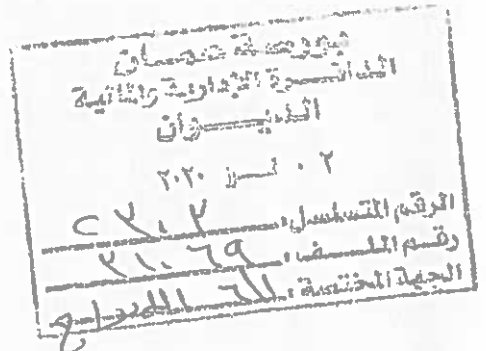 بورصة عمان
الدائرة الإدارية والمالية
الديوان
٠٢ تموز ٢٠٢٠
الرقم المتسلسل:
رقم الملف: ٢١٠٦٩
الجهة المختصة: